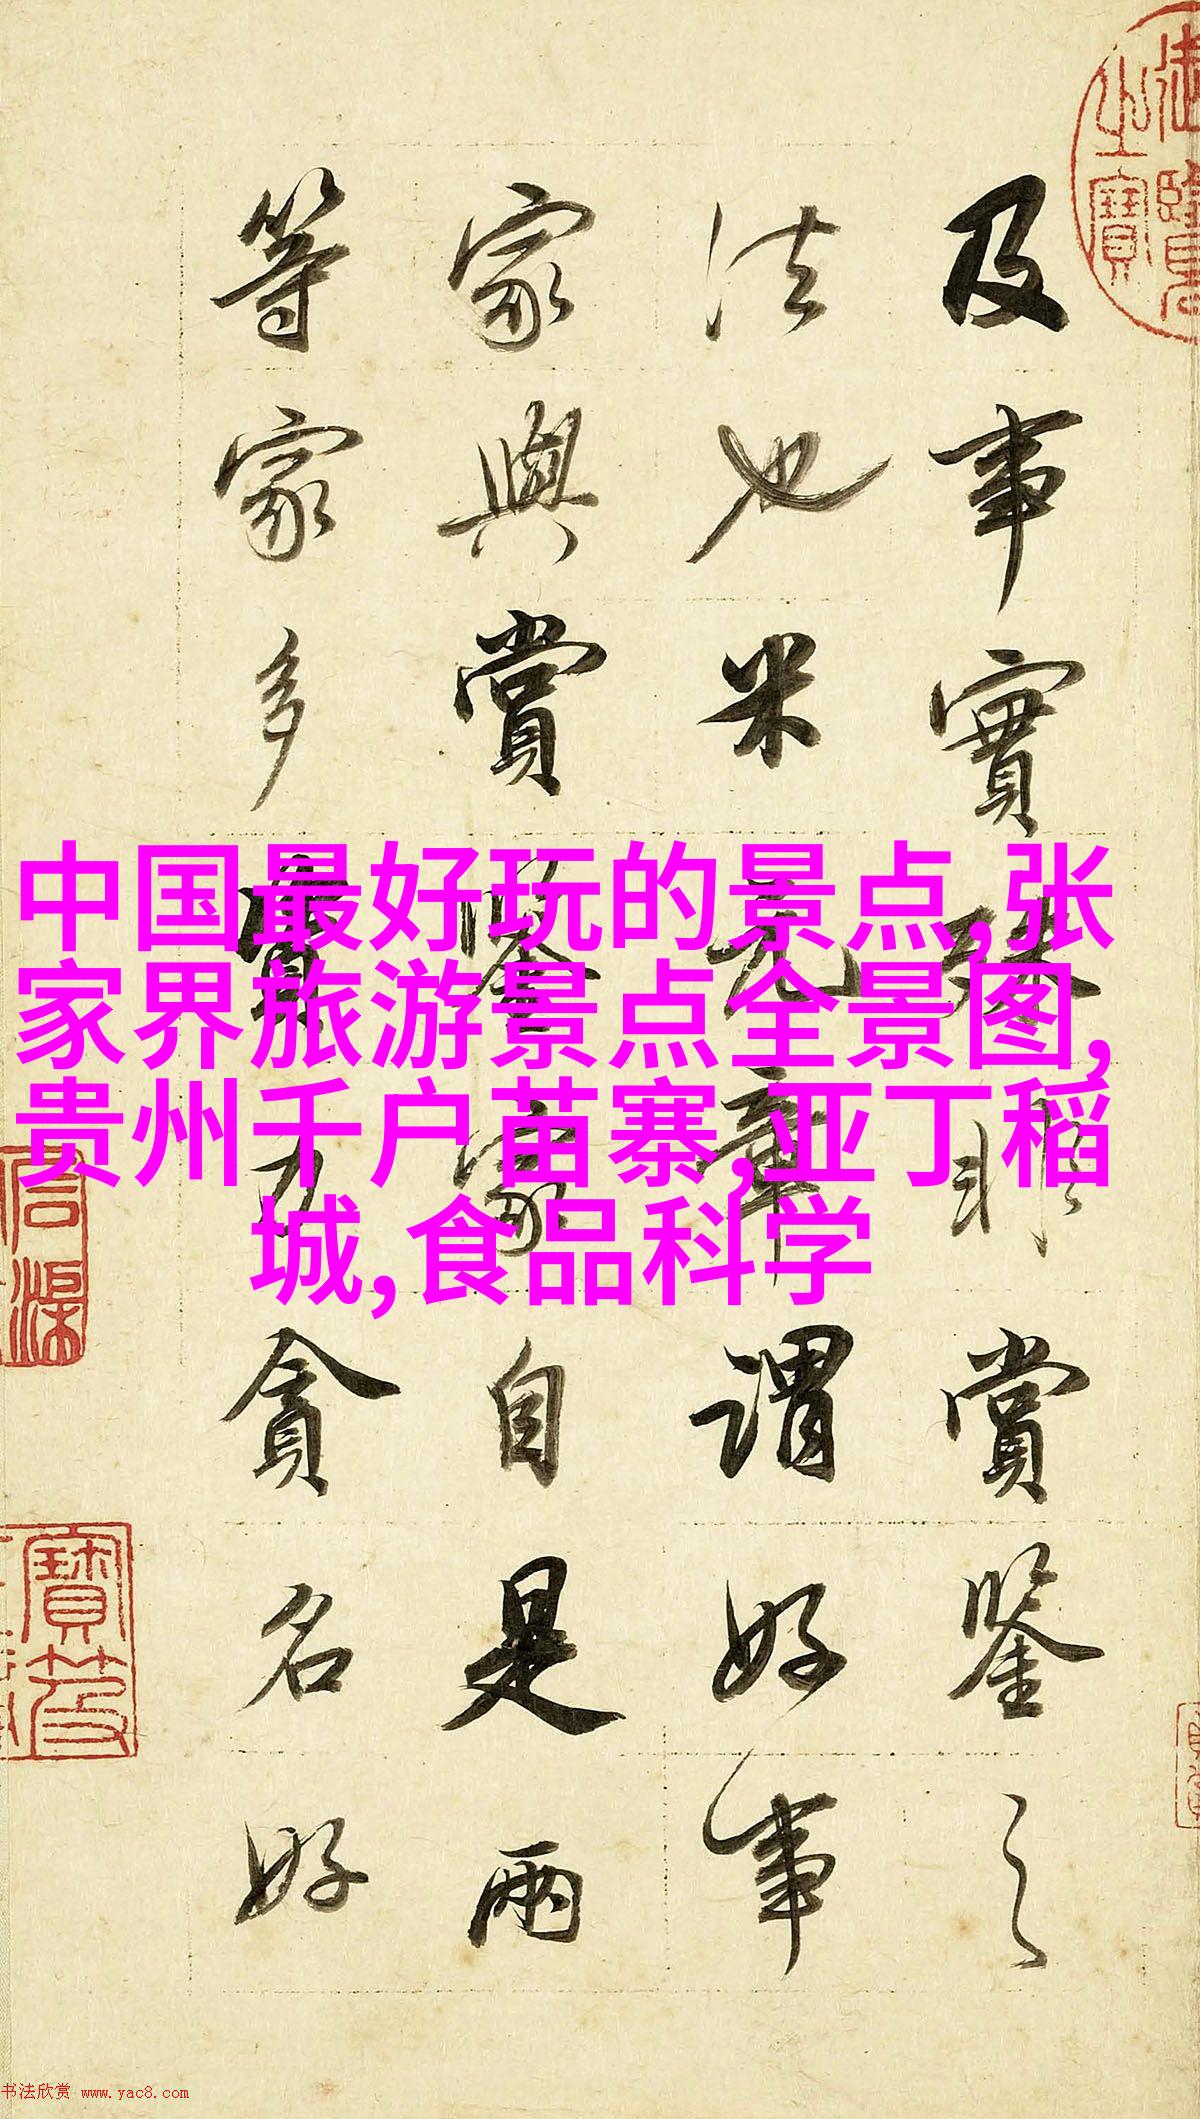 御覽之寶
及事實殊非賞鑒之
法也米元章謂好事
家與賞鑒家自是兩
等家多資力貪名好
中国最好玩的景点,张
家界旅游景点全景图,
贵州千户苗寨,亚丁稻
城,食品科学
书法欣赏 www.yac8.com